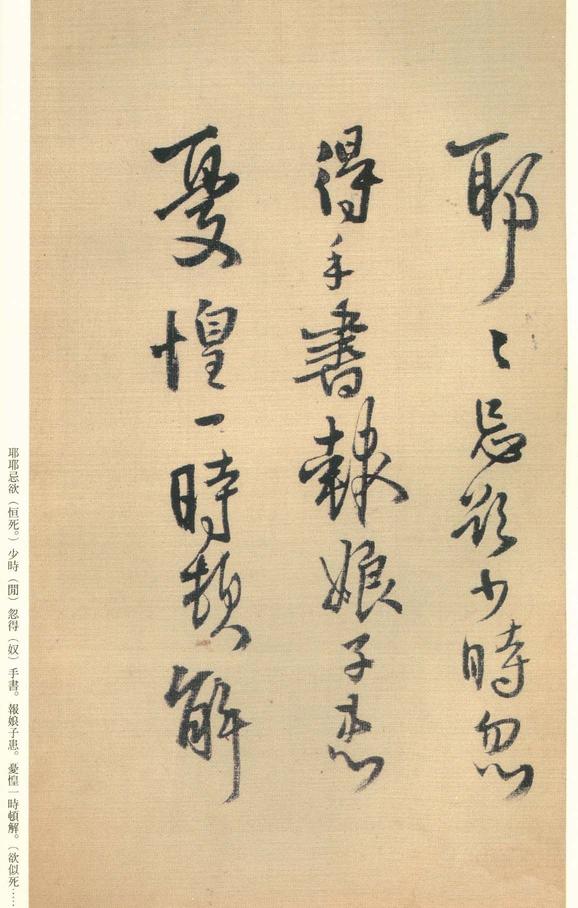 耶〻忌欲少時忽
得手書報娘子患
憂惶一時頓解
耶耶忌欲（恒死。）少時（閒）忽得（奴）手書。報娘子患。憂惶一時頓解。〔欲似死……